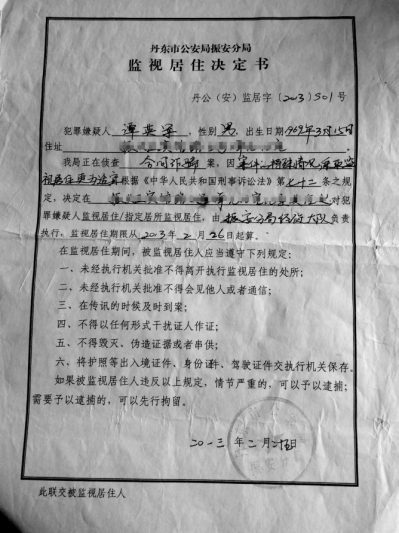 丹东市公安局振安分局
监视居住决定书
丹公（安）监居字〔2013〕501号
犯罪嫌疑人 谭 ，性别 男 出生日期1969年3月15日
住址
我局正在侦查 合同诈骗 案，因 案件 特殊情况
视居住更为适宜根据《中华人民共和国刑事诉讼法》第七十二条之规
定，决定在 对犯
罪嫌疑人监视居住/指定居所监视居住，由 振安分局经侦大队负责
执行，监视居住期限从2013年2月26日起算。
在监视居住期间，被监视居住人应当遵守下列规定：
一、未经执行机关批准不得离开执行监视居住的处所；
二、未经执行机关批准不得会见他人或者通信；
三、在传讯的时候及时到案；
四、不得以任何形式干扰证人作证；
五、不得毁灭、伪造证据或者串供；
六、将护照等出入境证件、身份证件、驾驶证件交执行机关保存。
如果被监视居住人违反以上规定，情节严重的，可以予以逮捕；
需要予以逮捕的，可以先行拘留。
二〇一三年二月 日
此联交被监视居住人